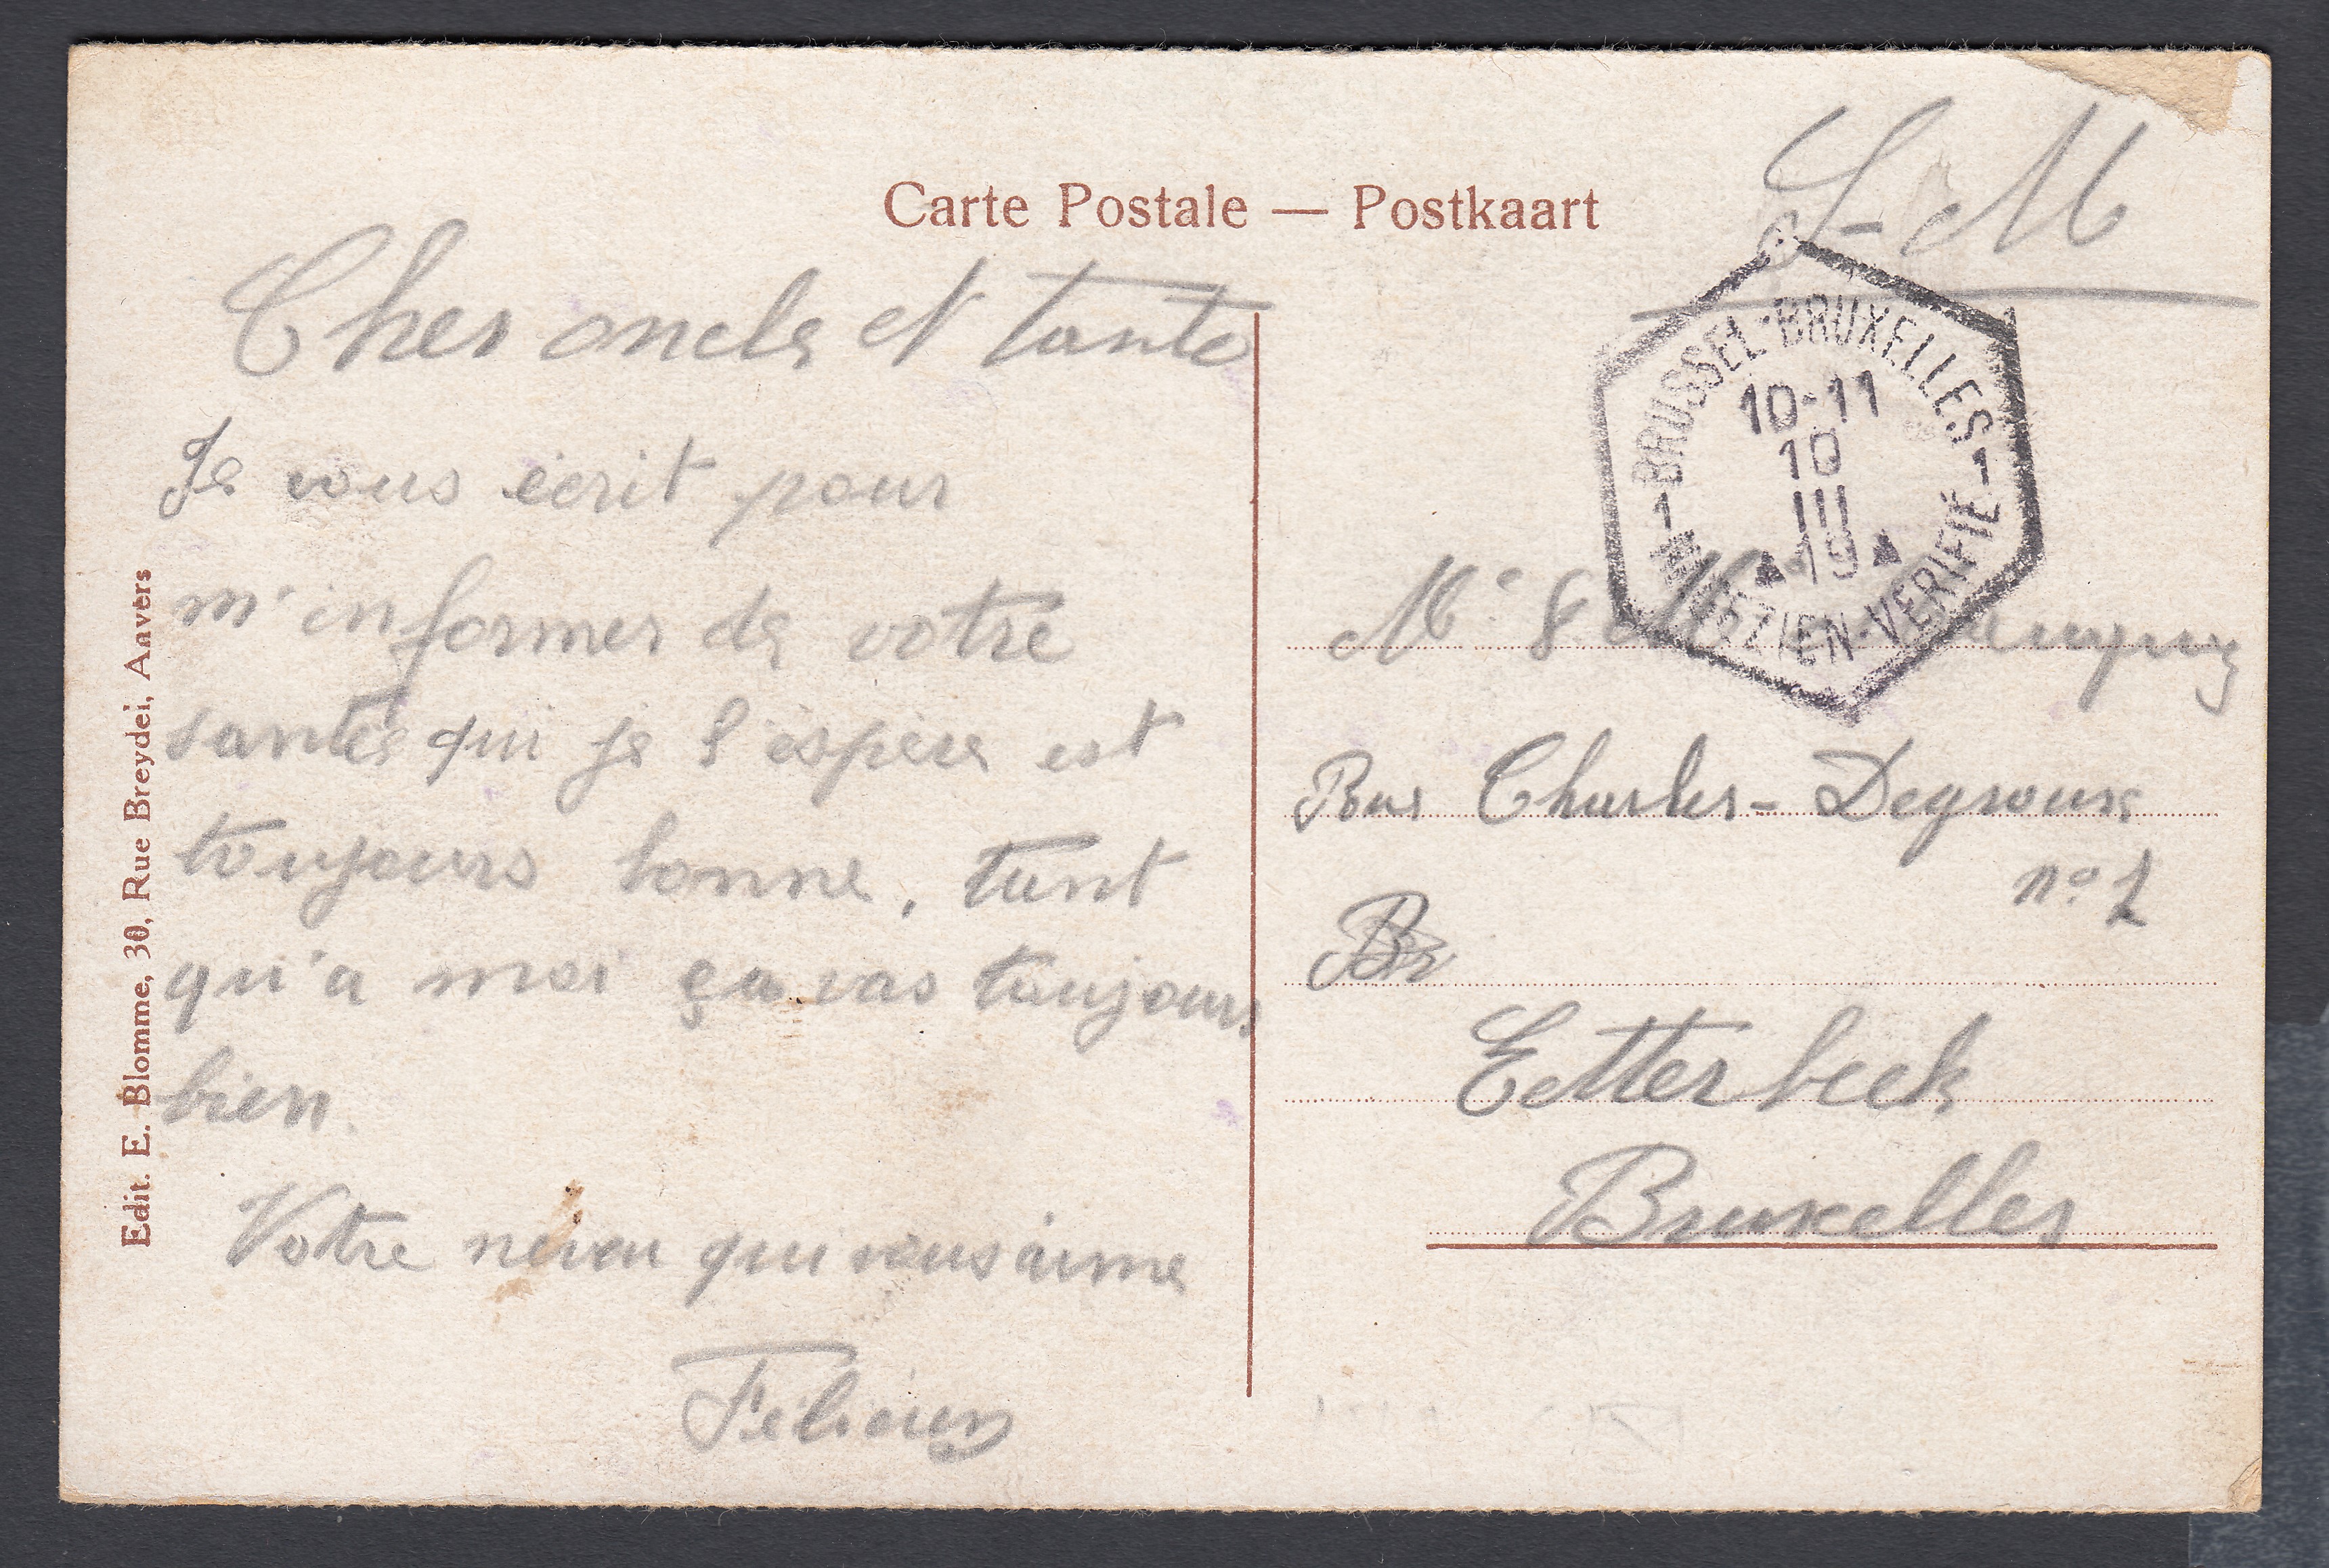 Carte Postale — Postkaart
S-M
Cher oncle et tante
Je vous écrit pour
m'informer de votre
santée qui je l'éspère est
toujours bonne, tant
qu'a moi ça vas toujours
bien.
Votre neveu qui vous aime
Félicien
Edit. E. Blomme, 30, Rue Breydel, Anvers
1-BRUSSEL-BRUXELLES-1
10-11
10
III
19
NAGEZIEN-VERIFIÉ
Rue Charles-Degroux
n° 1
Br
Eetterbeek
Bruxelles